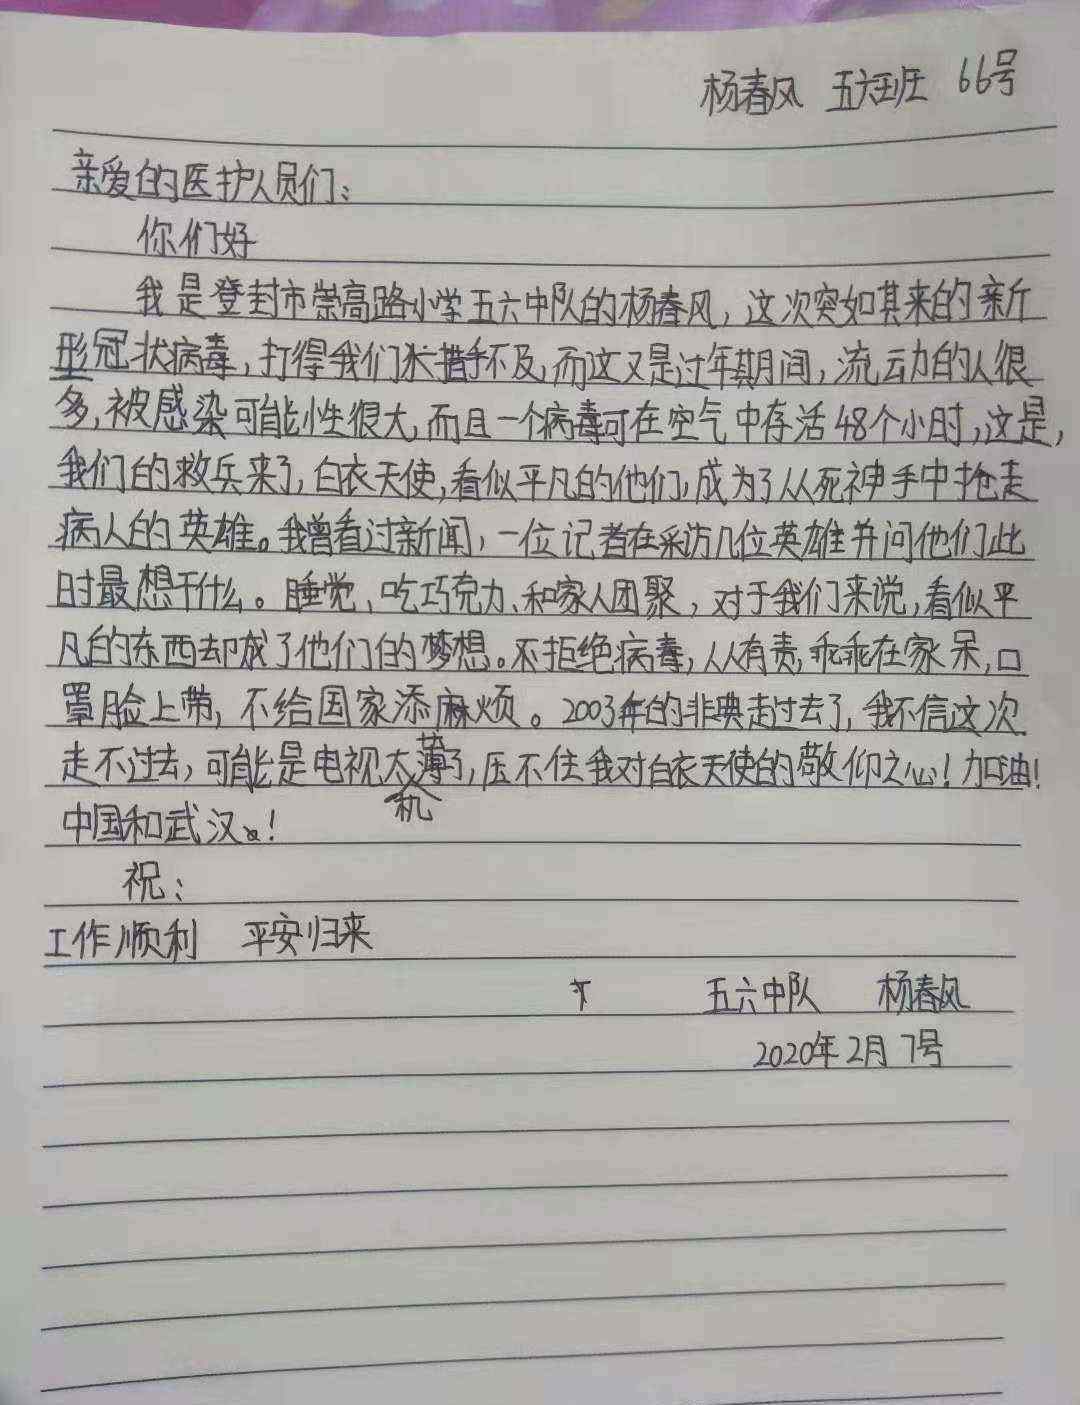 杨春风 五六班 66号
亲爱的医护人员们:
你们好
我是登封市崇高路小学五六中队的杨春风,这次突如其来的新
形冠状病毒,打得我们措手不及,而这又是过年期间,流动的人很
多,被感染可能性很大,而且一个病毒可在空气中存活48个小时,这是,
我们的救兵来了,白衣天使,看似平凡的他们,成为了从死神手中抢走
病人的英雄。我曾看过新闻,一位记者在采访几位英雄并问他们此
时最想干什么。睡觉、吃巧克力、和家人团聚,对于我们来说,看似平
凡的东西却成了他们的梦想。不拒绝病毒,人人有责,乖乖在家呆,口
罩脸上带,不给国家添麻烦。2003年的非典走过去了,我不信这次
走不过去,可能是电视机太薄了,压不住我对白衣天使的敬仰之心!加油!
中国和武汉!
祝:
工作顺利 平安归来
五六中队 杨春风
2020年2月7号